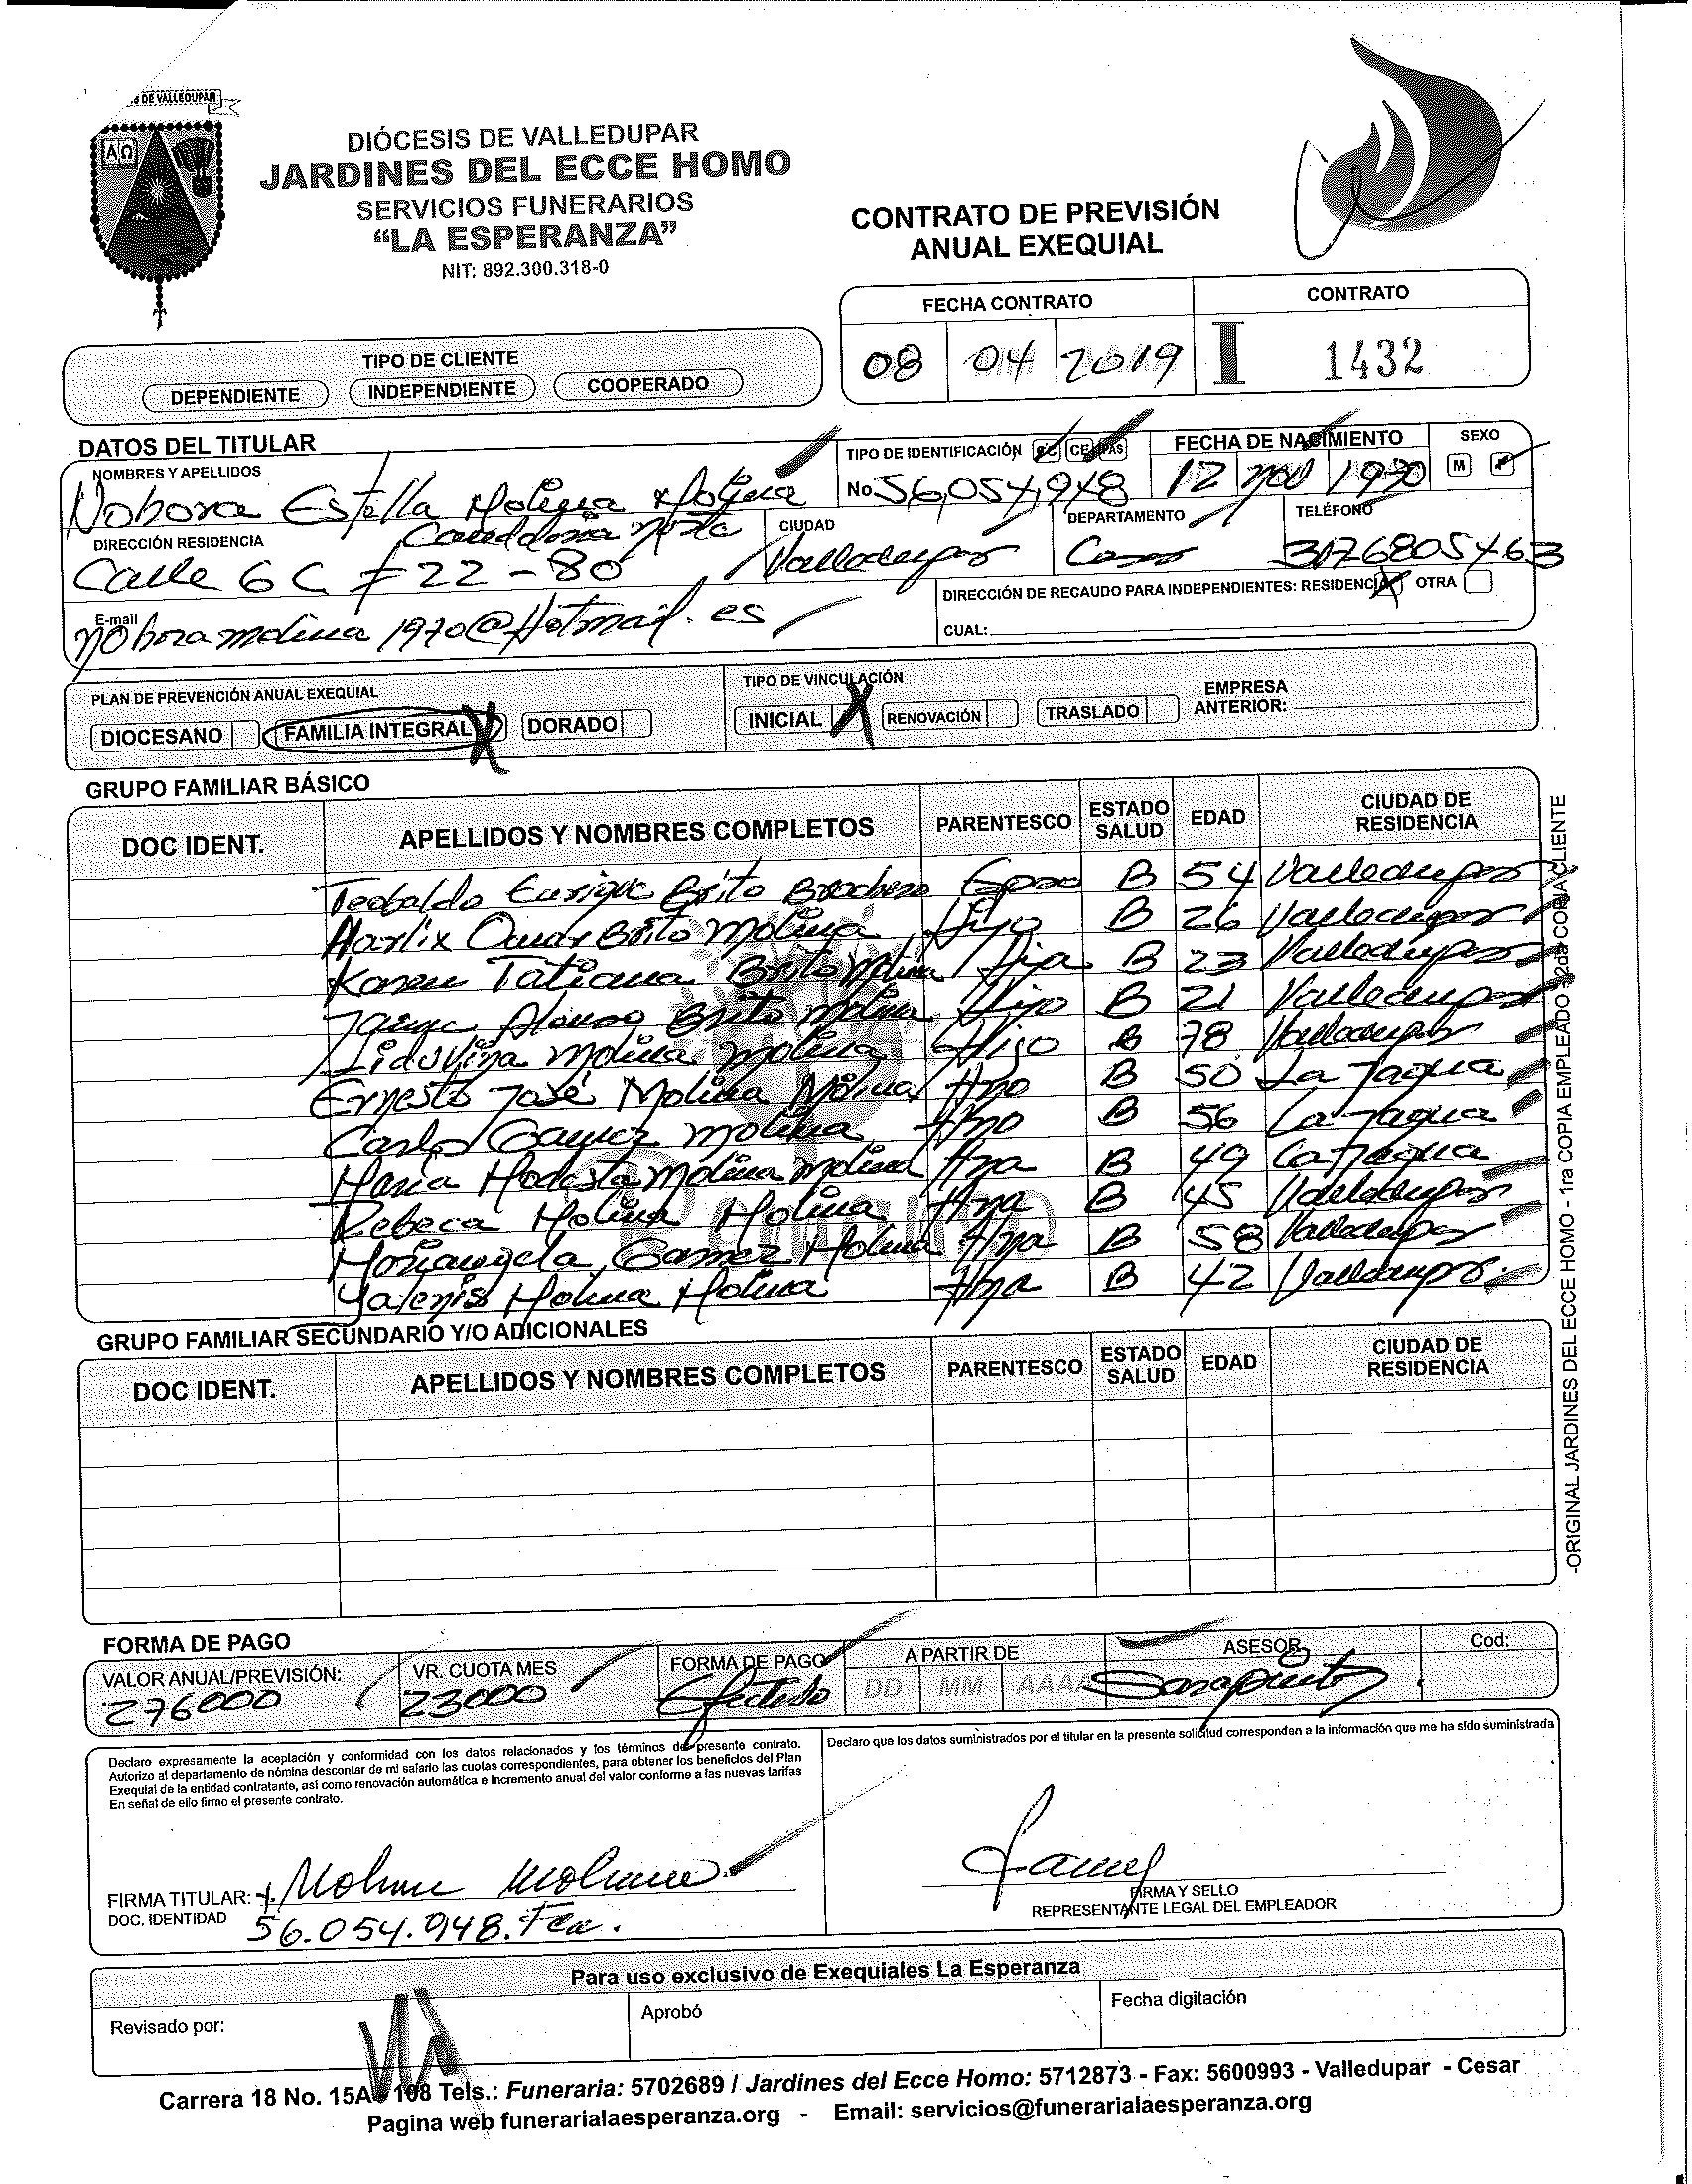 S DE VALLEDUPAR
ΑΩ
DIÓCESIS DE VALLEDUPAR
JARDINES DEL ECCE HOMO
SERVICIOS FUNERARIOS
“LA ESPERANZA”
NIT: 892.300.318-0
CONTRATO DE PREVISIÓN
ANUAL EXEQUIAL
FECHA CONTRATO CONTRATO
08 04 2019 I 1432
TIPO DE CLIENTE
DEPENDIENTE INDEPENDIENTE COOPERADO
DATOS DEL TITULAR
NOMBRES Y APELLIDOS TIPO DE IDENTIFICACIÓN CC CE PAS FECHA DE NACIMIENTO SEXO M F
Nohora Estella Molina Molina No 56,054,948 12 1970
DIRECCIÓN RESIDENCIA CIUDAD DEPARTAMENTO TELÉFONO
Calle 6 C # 22 - 80 Valledupar Cesar 3176805463
E-mail DIRECCIÓN DE RECAUDO PARA INDEPENDIENTES: RESIDENCIA OTRA
nohoramolina1970@Hotmail.es CUAL:
PLAN DE PREVENCIÓN ANUAL EXEQUIAL TIPO DE VINCULACIÓN
DIOCESANO FAMILIA INTEGRAL X DORADO INICIAL X RENOVACIÓN TRASLADO EMPRESA ANTERIOR:
GRUPO FAMILIAR BÁSICO
DOC IDENT. APELLIDOS Y NOMBRES COMPLETOS PARENTESCO ESTADO SALUD EDAD CIUDAD DE RESIDENCIA
Teobaldo Enrique Brito Esposo B 54 Valledupar
Harlix Omar Brito Molina Hijo B 26 Valledupar
Karen Tatiana Brito Molina Hija B 23 Valledupar
Jayme Alonso Brito Molina Hijo B 21 Valledupar
Liduvina Molina Molina Hijo B 78 Valledupar
Ernesto José Molina Molina Hno B 50 La Jagua
Carlos Gamez Molina Hno B 56 La Jagua
Maria Modesta Molina Molina Hna B 49 La Jagua
Rebeca Molina Molina Hna B 45 Valledupar
Mariangela Gamez Molina Hna B 58 Valledupar
Yalenis Molina Molina Hna B 42 Valledupar
GRUPO FAMILIAR SECUNDARIO Y/O ADICIONALES
DOC IDENT. APELLIDOS Y NOMBRES COMPLETOS PARENTESCO ESTADO SALUD EDAD CIUDAD DE RESIDENCIA
-ORIGINAL JARDINES DEL ECCE HOMO - 1ra COPIA EMPLEADO - 2da COPIA CLIENTE
FORMA DE PAGO
VALOR ANUAL/PREVISIÓN: VR. CUOTA MES FORMA DE PAGO A PARTIR DE ASESOR Cod:
276000 23000 Efectivo DD MM AAAA
Declaro expresamente la aceptación y conformidad con los datos relacionados y los términos del presente contrato.
Autorizo al departamento de nómina descontar de mi salario las cuotas correspondientes, para obtener los beneficios del Plan
Exequial de la entidad contratante, así como renovación automática e incremento anual del valor conforme a las nuevas tarifas
En señal de ello firmo el presente contrato.
Declaro que los datos suministrados por el titular en la presente solicitud corresponden a la información que me ha sido suministrada
FIRMA TITULAR:
DOC. IDENTIDAD 56.054.948.
FIRMA Y SELLO
REPRESENTANTE LEGAL DEL EMPLEADOR
Para uso exclusivo de Exequiales La Esperanza
Revisado por: Aprobó Fecha digitación
Carrera 18 No. 15A - 108 Tels.: Funeraria: 5702689 / Jardines del Ecce Homo: 5712873 - Fax: 5600993 - Valledupar - Cesar
Pagina web funerarialaesperanza.org - Email: servicios@funerarialaesperanza.org